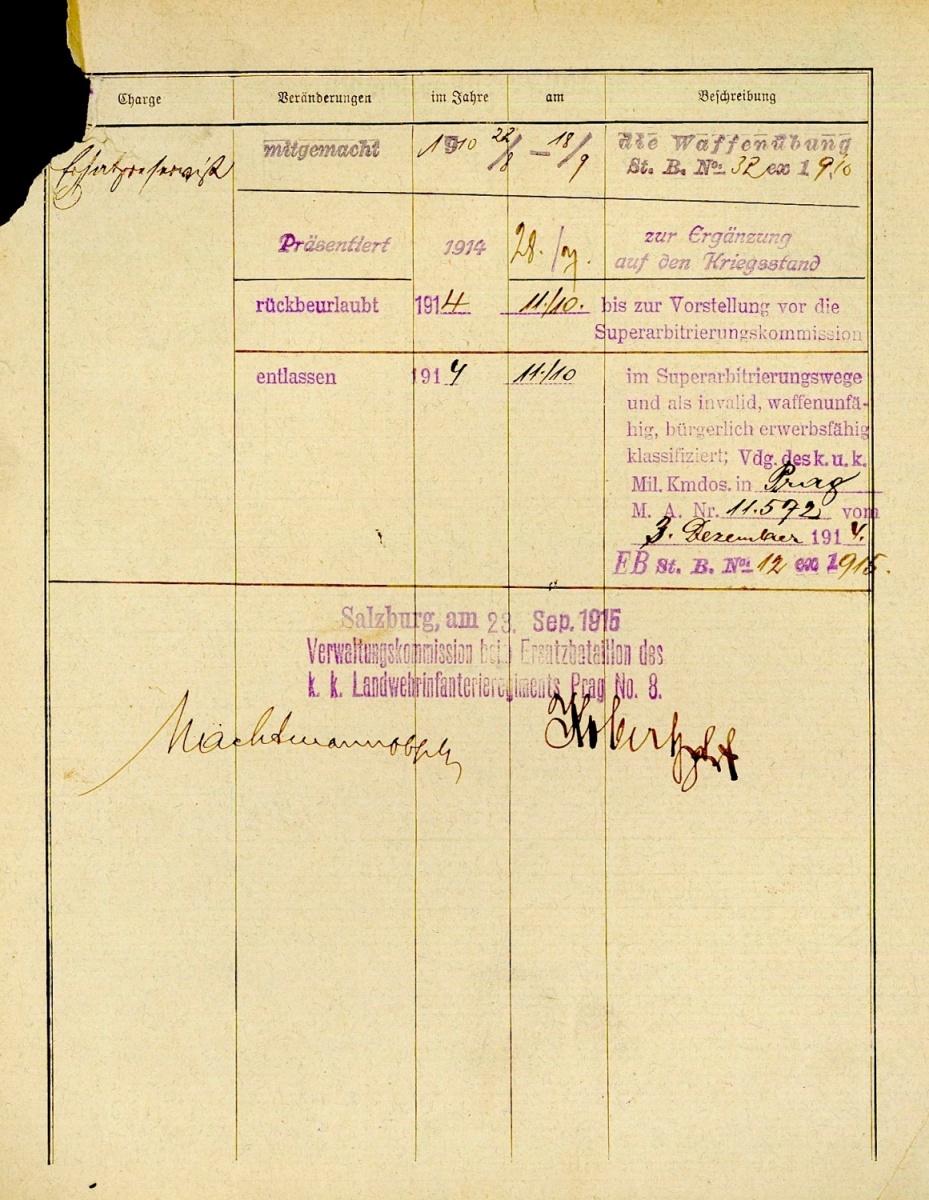 Charge Veränderungen im Jahre am Beschreibung
Ersatzreservist mitgemacht 1910 22/8 — 18/9 die Waffenübung
St. B. No: 32 ex 1910
Präsentiert 1914 28./7. zur Ergänzung
auf den Kriegsstand
rückbeurlaubt 1914 11./10. bis zur Vorstellung vor die
Superarbitrierungskommission
entlassen 1914 11./10 im Superarbitrierungswege
und als invalid, waffenunfä-
hig, bürgerlich erwerbsfähig
klassifiziert; Vdg. des k. u. k.
Mil. Kmdos. in Prag
M. A. Nr. 11.572 vom
3. Dezember 1914.
EB St. B. No: 12 ex 1915.
Salzburg, am 23. Sep. 1915
Verwaltungskommission beim Ersatzbataillon des
k. k. Landwehrinfanterieregiments Prag No. 8.